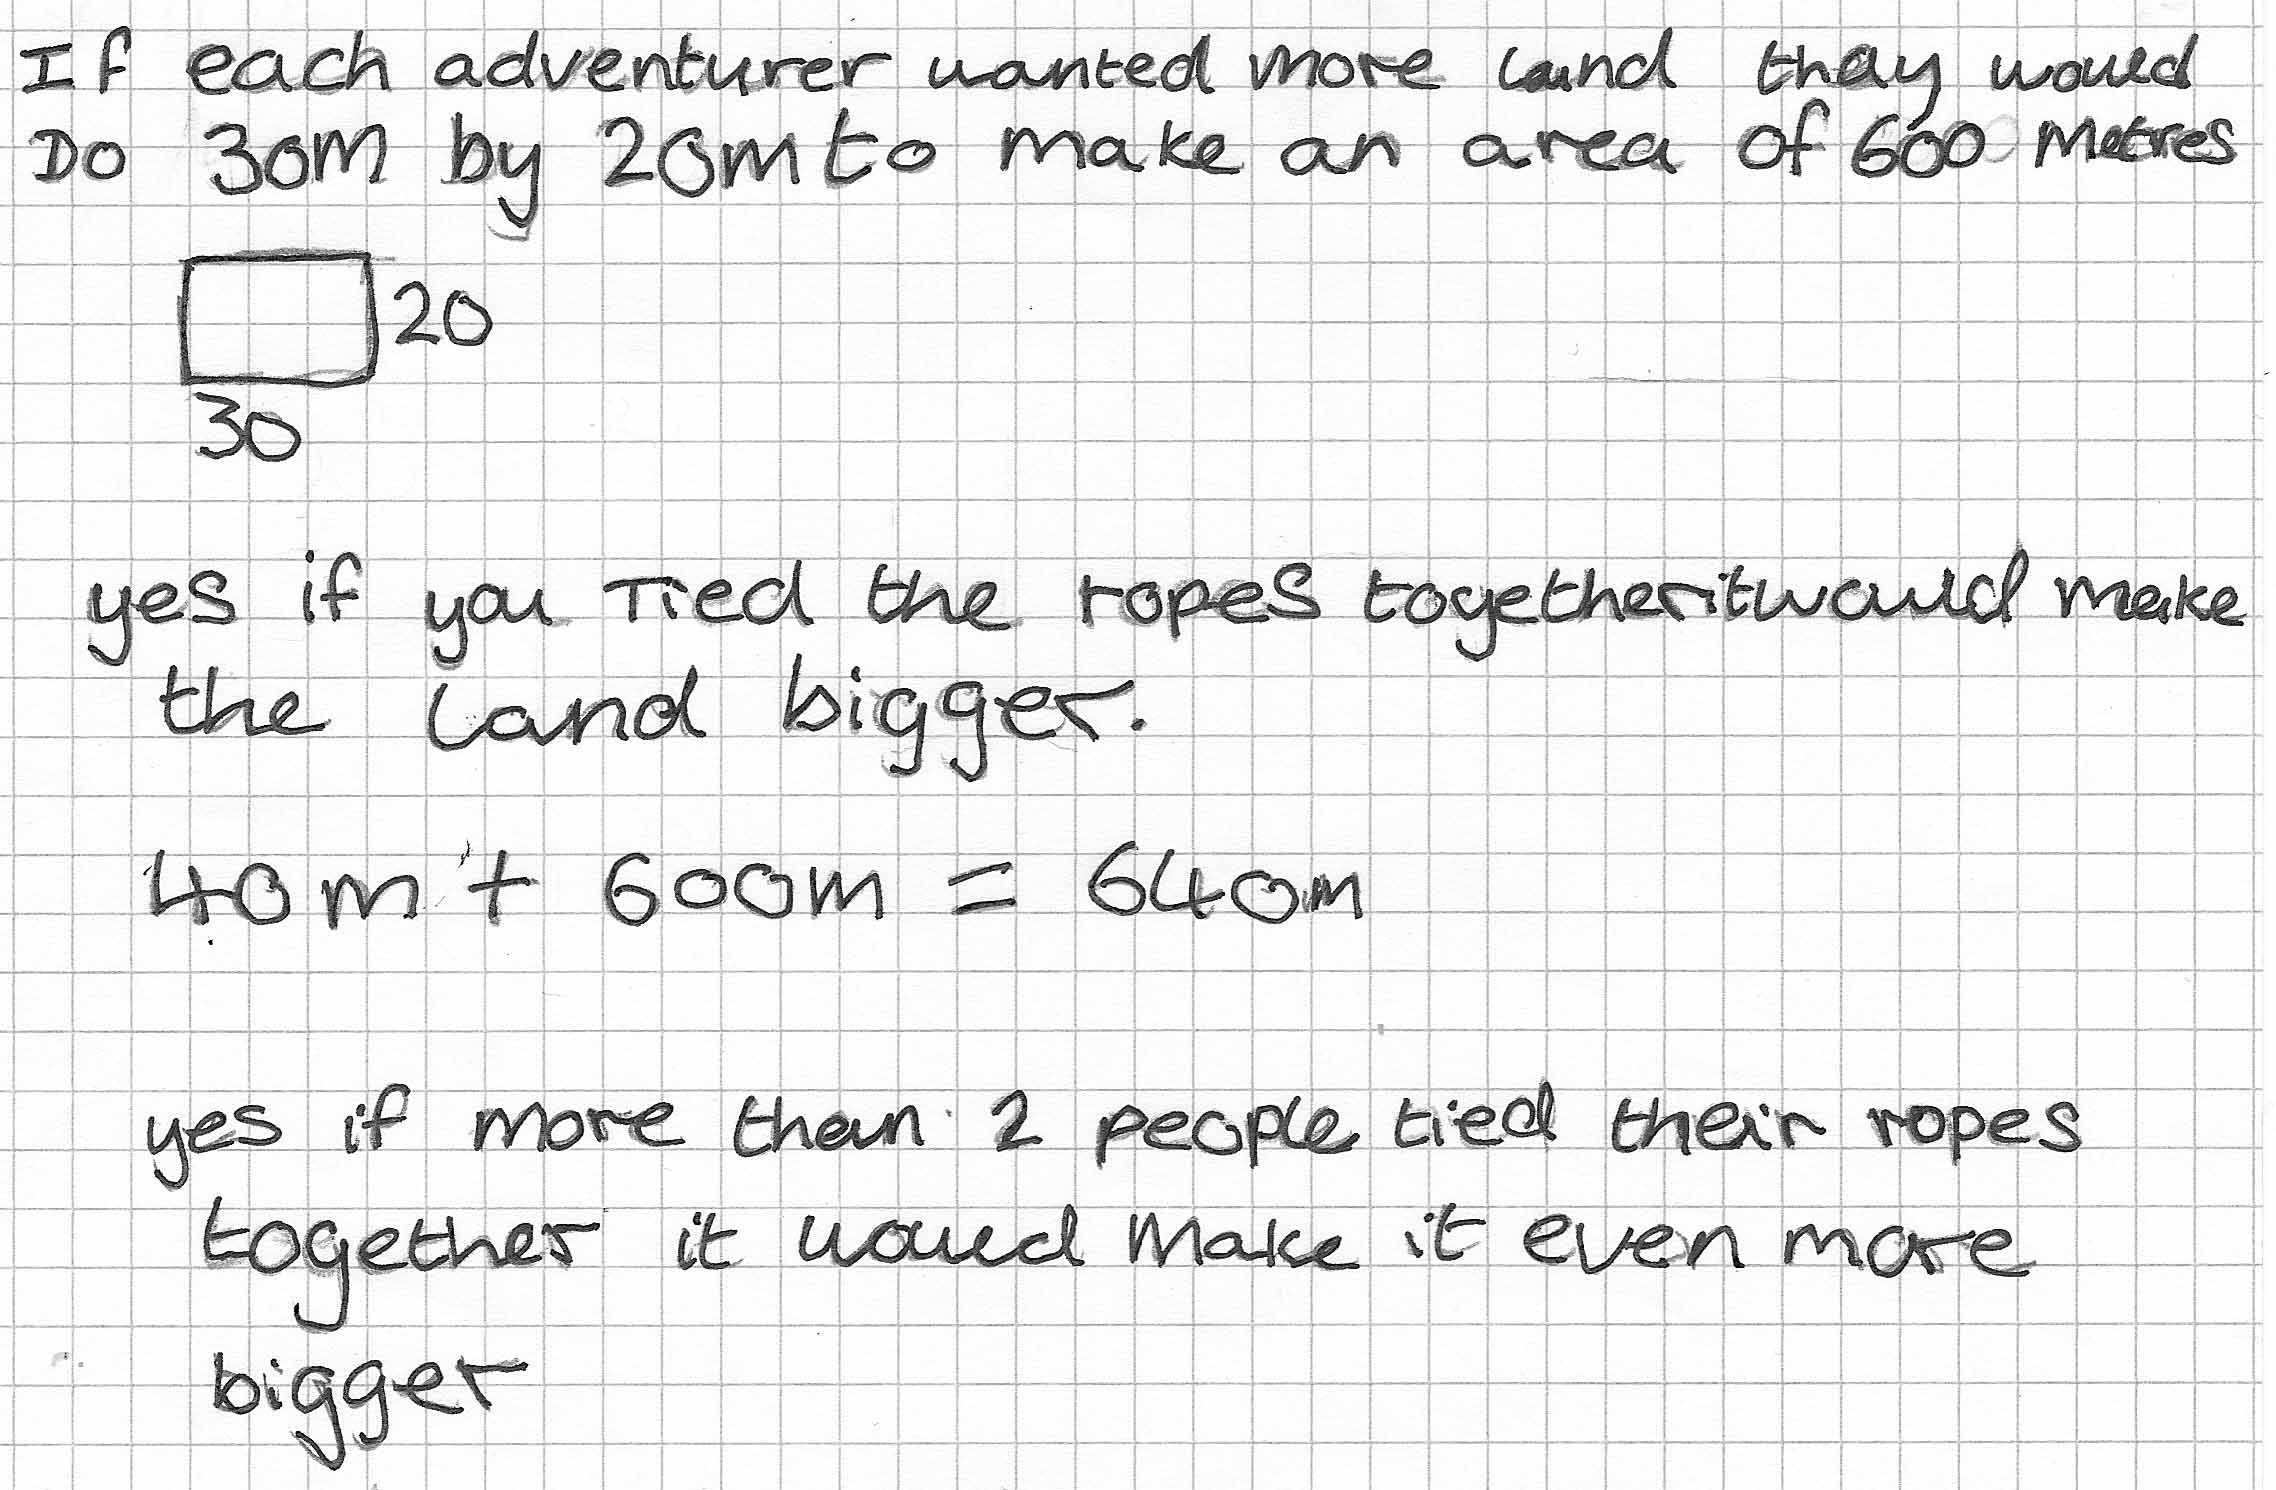 If each adventurer wanted more land they would
Do 30M by 20m to make an area of 600 Metres
20
30
yes if you Tied the ropes togetheritwould make
the land bigger.
40m + 600m = 640m
yes if more than 2 people tied their ropes
together it would Make it even more
bigger